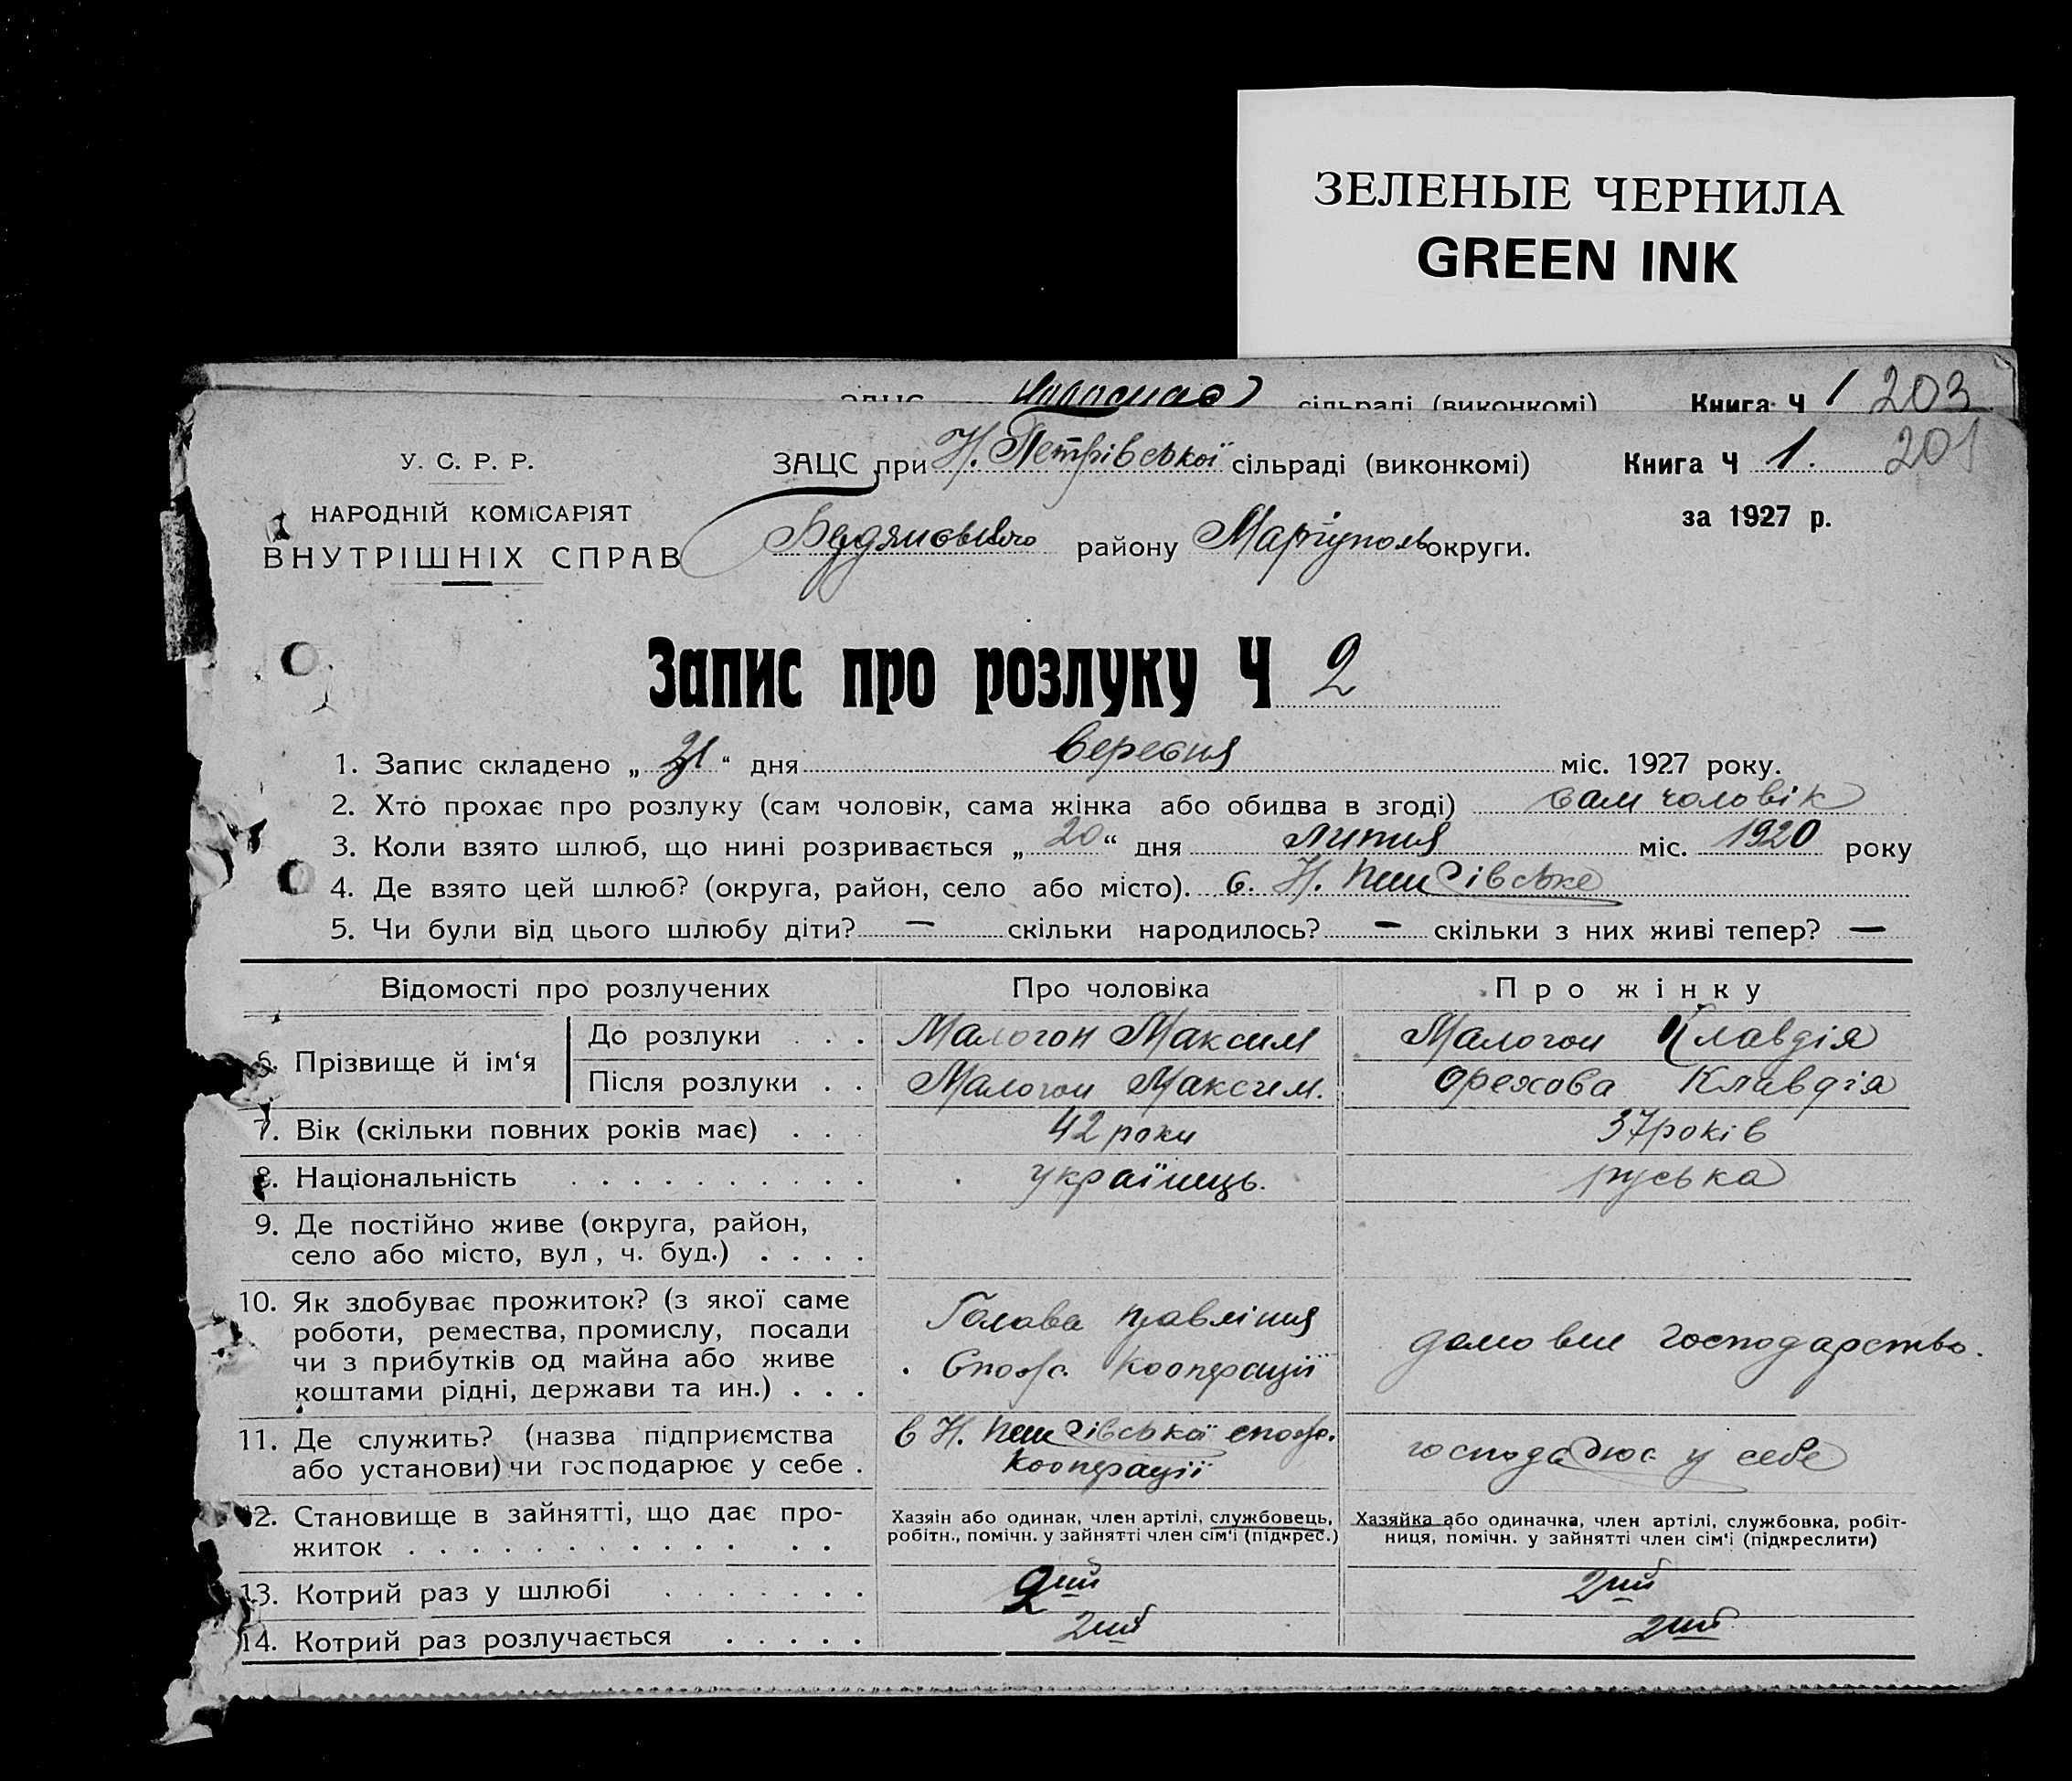 ЗЕЛЕНЫЕ ЧЕРНИЛА
GREEN INK
сільраді (виконкомі) Книга Ч 1 203
У. С. Р. Р. ЗАЦС при Н. Петрівської сільраді (виконкомі) Книга Ч 1. 201
НАРОДНІЙ КОМІСАРІЯТ за 1927 р.
ВНУТРІШНІХ СПРАВ району Маріуполь округи.
Запис про розлуку Ч 2
1. Запис складено „ 21 “ дня вересня міс. 1927 року.
2. Хто прохає про розлуку (сам чоловік, сама жінка або обидва в згоді) сам чоловік
3. Коли взято шлюб, що нині розривається „ 20 “ дня липня міс. 1920 року
4. Де взято цей шлюб? (округа, район, село або місто). с. Н. Петрівське
5. Чи були від цього шлюбу діти? — скільки народилось? — скільки з них живі тепер? —
Відомості про розлучених Про чоловіка Про жінку
6. Прізвище й ім‘я До розлуки . . . Малогон Максим Малогон Клавдія
Після розлуки . . Малогон Максим. Орехова Клавдія
7. Вік (скільки повних років має) . . . 42 роки 37 років
8. Національність . . . . . . . . . . українець. руська
9. Де постійно живе (округа, район,
село або місто, вул., ч. буд.) . . . .
10. Як здобуває прожиток? (з якої саме
роботи, ремества, промислу, посади
чи з прибутків од майна або живе
коштами рідні, держави та ин.) . . .
Голова правління
Спож. Кооперації
домовне господарство.
11. Де служить? (назва підприємства
або установи) чи господарює у себе .
в Н. Петрівської спож.
Кооперації
господарює у себе
12. Становище в зайнятті, що дає про-
житок . . . . . . . . . . . . . .
Хазяін або одинак, член артілі, службовець,
робітн., помічн. у зайнятті член сім‘ї (підкрес.)
Хазяйка або одиначка, член артілі, службовка, робіт-
ниця, помічн. у зайнятті член сім‘ї (підкреслити)
13. Котрий раз у шлюбі . . . . . . . 2ий 2ий
14. Котрий раз розлучається . . . . . 2ий 2ий